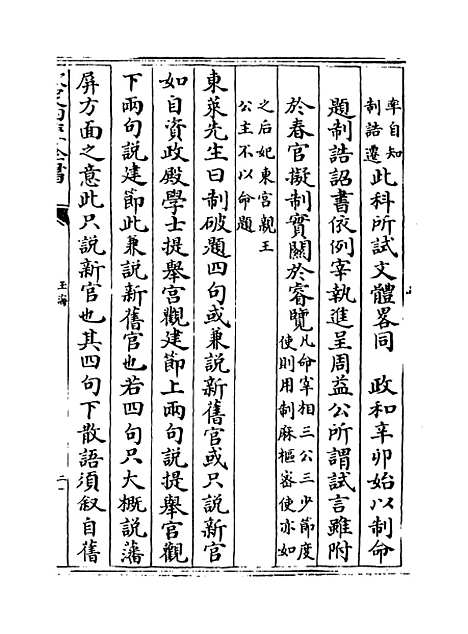 率自知
制誥遷此科所試文體畧同　政和辛卯始以制命
題制誥詔書依例宰執進呈周益公所謂試言雖附
於春官擬制實關於睿覽凡命宰相三公三少節度
使則用制麻樞密使亦如
之后妃東宮親王
公主不以命題
東萊先生曰制破題四句或兼說新舊官或只說新官
如自資政殿學士提舉宮觀建節上兩句說提舉官觀
下兩句說建節此兼說新舊官也若四句只大概說藩
屏方面之意此只說新官也其四句下散語須叙自舊
玉海